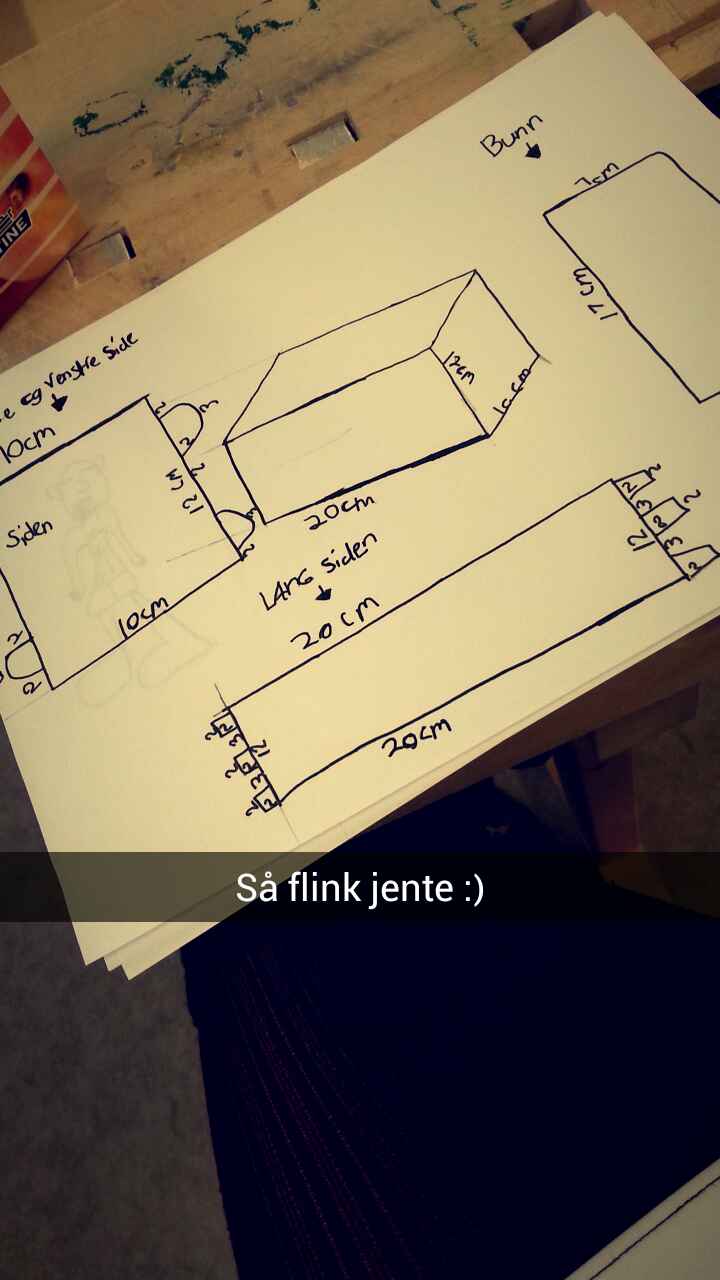 Bunn
7cm
17cm
og venstre side
10cm
2
3
2
2
12cm
3
2
Siden
10cm
2
2
12cm
10cm
20cm
LANG Siden
20cm
2
2
3
2
2
12
3
2
2
2
3
12
2
2
3
2
2
20cm
Så flink jente :)